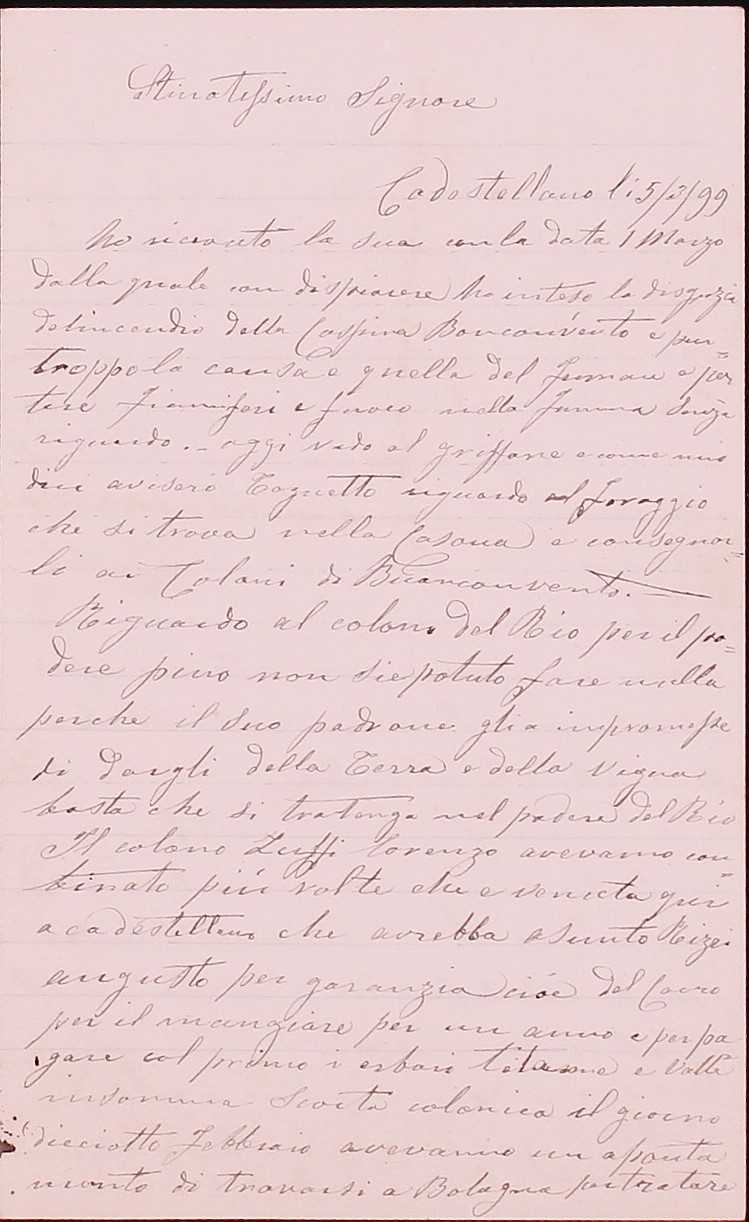 Stimatissimo Signore
Cadestellano li 5/3/99
ho ricevuto la sua con la data 1 Marzo
dalla quale con dispiacere ho inteso la disgrazia
delincendio della Cassina Bonconvento e pur=
troppo la causa e quella del fumare e por
tare fiamiferi e fuoco nella senza
riguardo. - oggi vado al griffone e come mio
dici aviserò Tognetto riguardo al foraggio
che si trova nella Casona e consegnar=
li ai Coloni di Buonconvento. —
Riguardo al colono del Rio per il po=
dere pino non sie potuto fare nulla
perche il suo padrone glia inpromesse
di dargli della Terra e della vigna
basta che si tratenga nel podere del Rio
Il colono Zuffi lorenzo avevamo con=
binato più volte che e venuta qui
a cadestellano che avrebba asunto Rizzi
augusto per garanzia cióe del
per il mangiare per un anno e per pa
gare col primo i erbari letame e Valle
insomma Scorta colonica il giorno
dicciotto febbraio avevamo un aponta
mento di trovarsi a Bologna per tratare